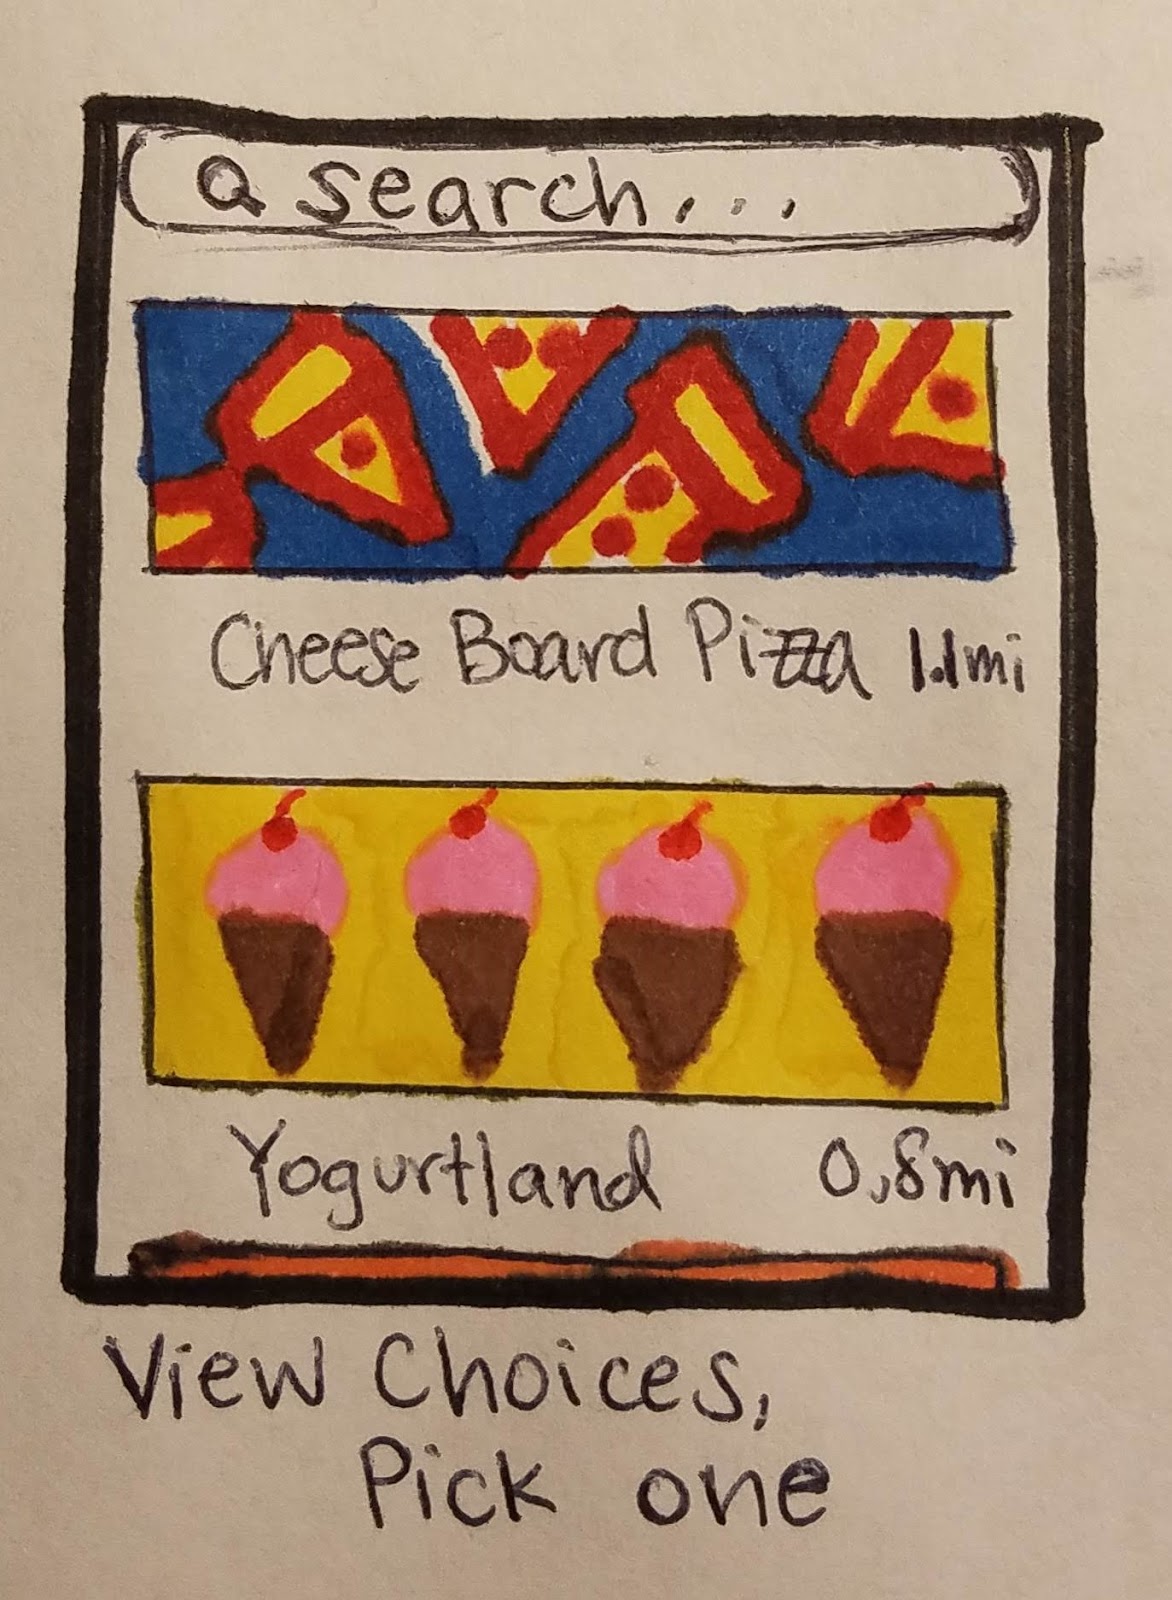 search...
Cheese Board Pizza 1.1mi
Yogurtland 0.8mi
View Choices,
Pick one